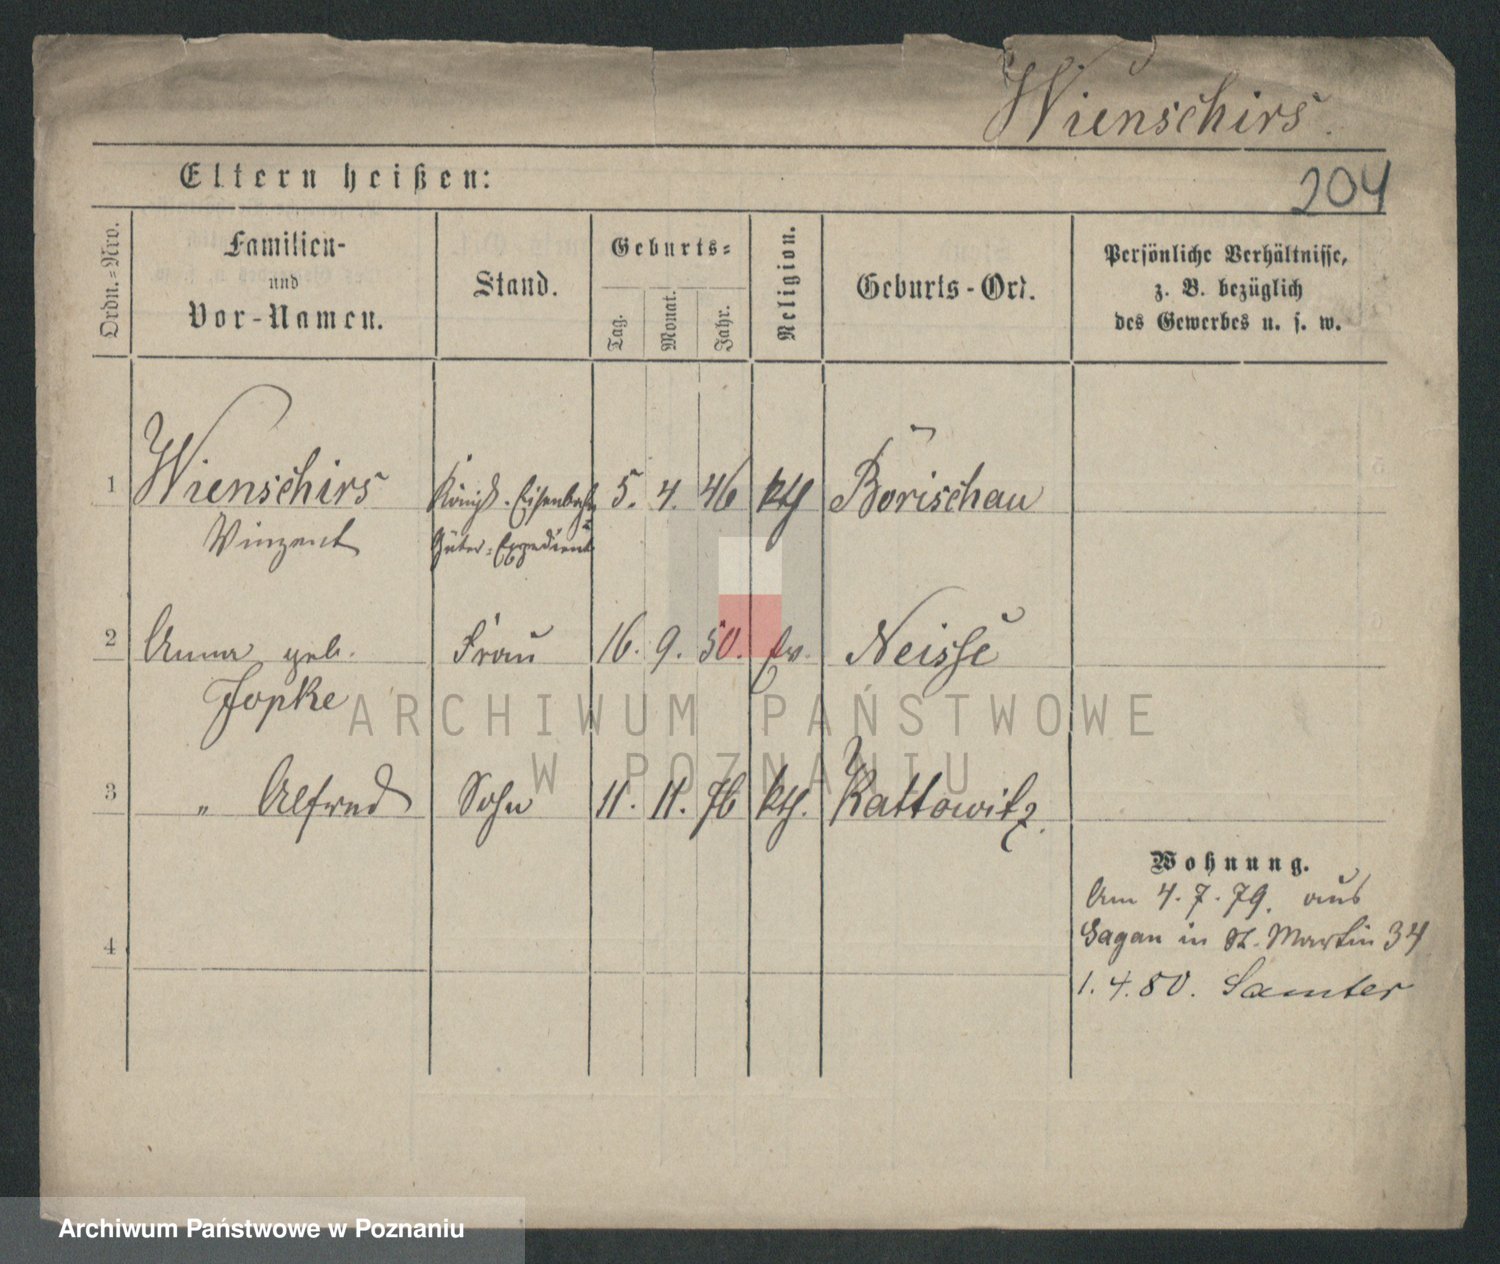 Wienschirs.
Eltern heißen:
204
Ordn.=Nro.
Familien-
und
Vor-Namen.
Stand.
Geburts=
Tag.
Monat.
Jahr.
Religion.
Geburts-Ort.
Persönliche Verhältnisse,
z. B. bezüglich
des Gewerbes u. s. w.
1 Wienschirs Königl. Eisenbahn 5. 4. 46 kth Borischau
Vinzent Güter-Expedient
2 Anna geb. Frau 16. 9. 50. ev. Neisse
Jopke
3 " Alfred Sohn 11. 11. 76 kth. Kattowitz.
Wohnung.
Am 4. 7. 79. aus
Sagan in St. Martin 34
4
1. 4. 80. Samter
ARCHIWUM PAŃSTWOWE
W POZNANIU
Archiwum Państwowe w Poznaniu